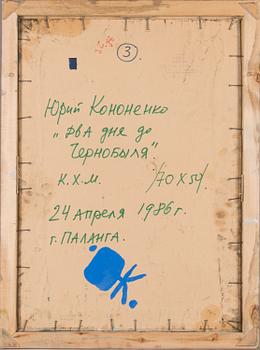 3
Юрий Кононенко
„Два дня до
Чернобыля"
К.Х.М. /70 х 54/.
24 апреля 1986 г.
г. Паланга.
Ж.